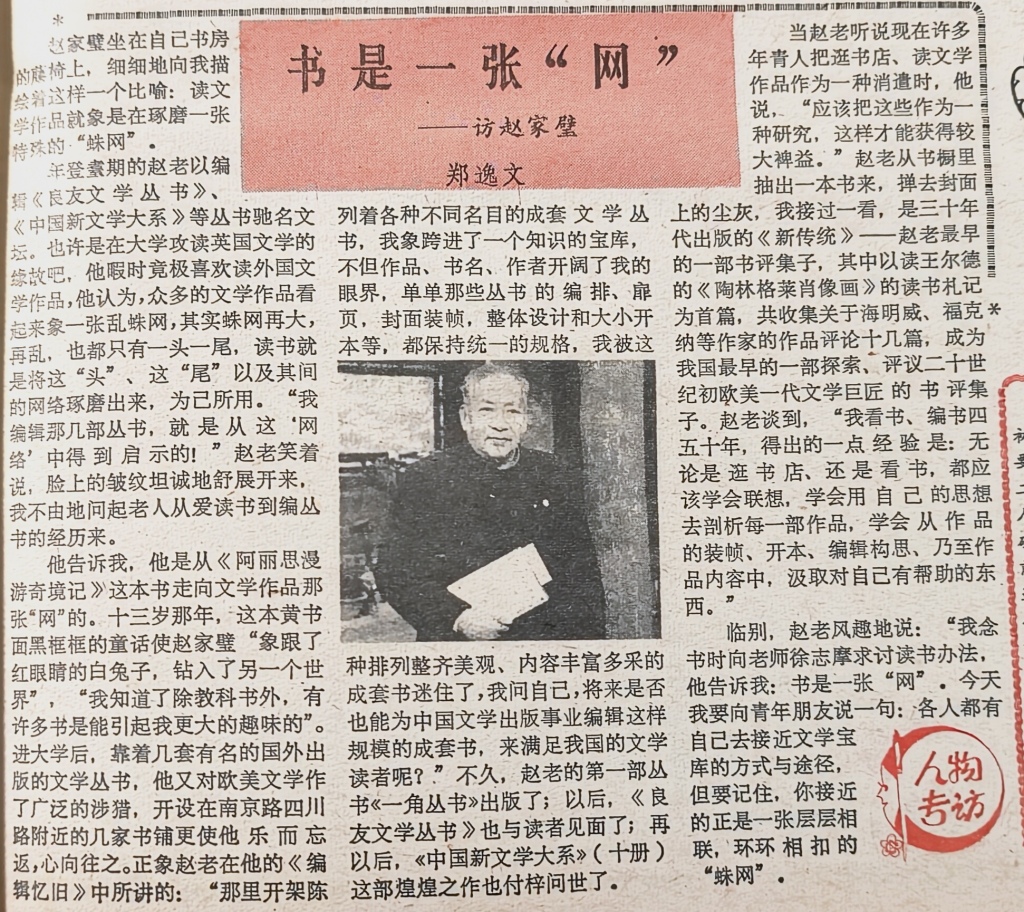 书是一张“网”
——访赵家璧
郑逸文
赵家璧坐在自己书房
的藤椅上，细细地向我描
绘着这样一个比喻：读文
学作品就象是在琢磨一张
特殊的“蛛网”。
年登耋期的赵老以编
辑《良友文学丛书》、
《中国新文学大系》等丛书驰名文
坛。也许是在大学攻读英国文学的
缘故吧，他暇时竟极喜欢读外国文
学作品，他认为，众多的文学作品看
起来象一张乱蛛网，其实蛛网再大，
再乱，也都只有一头一尾，读书就
是将这“头”、这“尾”以及其间
的网络琢磨出来，为己所用。“我
编辑那几部丛书，就是从这‘网
络’中得到启示的！”赵老笑着
说，脸上的皱纹坦诚地舒展开来，
我不由地问起老人从爱读书到编丛
书的经历来。
他告诉我，他是从《阿丽思漫
游奇境记》这本书走向文学作品那
张“网”的。十三岁那年，这本黄书
面黑框框的童话使赵家璧“象跟了
红眼睛的白兔子，钻入了另一个世
界”，“我知道了除教科书外，有
许多书是能引起我更大的趣味的”。
进大学后，靠着几套有名的国外出
版的文学丛书，他又对欧美文学作
了广泛的涉猎，开设在南京路四川
路附近的几家书铺更使他乐而忘
返，心向往之。正象赵老在他的《编
辑忆旧》中所讲的：“那里开架陈
列着各种不同名目的成套文学丛
书，我象跨进了一个知识的宝库，
不但作品、书名、作者开阔了我的
眼界，单单那些丛书的编排、扉
页，封面装帧，整体设计和大小开
本等，都保持统一的规格，我被这
种排列整齐美观、内容丰富多采的
成套书迷住了，我问自己，将来是否
也能为中国文学出版事业编辑这样
规模的成套书，来满足我国的文学
读者呢？”不久，赵老的第一部丛
书《一角丛书》出版了；以后，《良
友文学丛书》也与读者见面了；再
以后，《中国新文学大系》（十册）
这部煌煌之作也付梓问世了。
当赵老听说现在许多
年青人把逛书店、读文学
作品作为一种消遣时，他
说，“应该把这些作为一
种研究，这样才能获得较
大裨益。”赵老从书橱里
抽出一本书来，掸去封面
上的尘灰，我接过一看，是三十年
代出版的《新传统》——赵老最早
的一部书评集子，其中以读王尔德
的《陶林格莱肖像画》的读书札记
为首篇，共收集关于海明威、福克
纳等作家的作品评论十几篇，成为
我国最早的一部探索、评议二十世
纪初欧美一代文学巨匠的书评集
子。赵老谈到，“我看书、编书四
五十年，得出的一点经验是：无
论是逛书店、还是看书，都应
该学会联想，学会用自己的思想
去剖析每一部作品，学会从作品
的装帧、开本、编辑构思、乃至作
品内容中，汲取对自己有帮助的东
西。”
临别，赵老风趣地说：“我念
书时向老师徐志摩求讨读书办法，
他告诉我：书是一张“网”。今天
我要向青年朋友说一句：各人都有
自己去接近文学宝
库的方式与途径，
但要记住，你接近
的正是一张层层相
联，环环相扣的
“蛛网”。
人物
专访